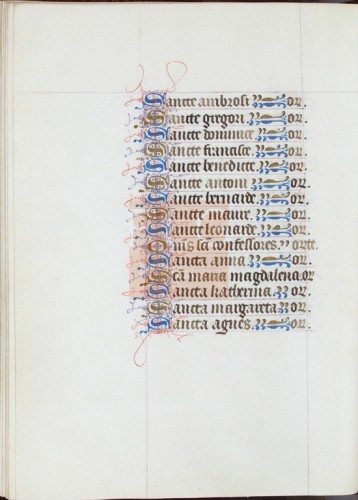 Sancte ambrosi or.
Sancte gregori. or.
Sancte dominice. or.
Sancte francisce. or.
Sancte benedicte. or.
Sancte antoni. or.
Sancte bernarde. or.
Sancte maure. or.
Sancte leonarde. or.
Oms sci confessores. orate.
Sancta anna. or.
Sca maria magdalena. or
Sancta katherina. or.
Sancta margareta or.
Sancta agnes. or.